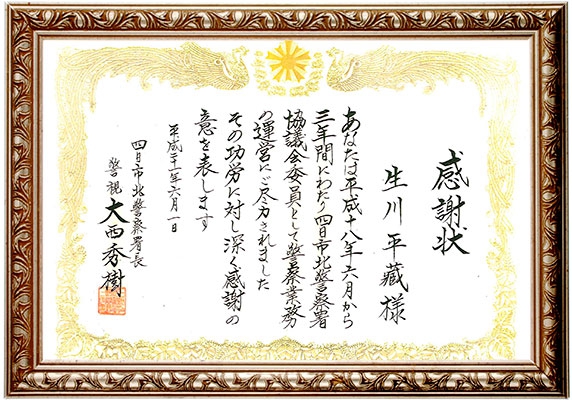 感謝状
生川平藏様
あなたは平成十八年六月から
三年間にわたり四日市北警察署
協議会委員として警察業務
の運営にご尽力されました
その功労に対し深く感謝の
意を表します
平成二十一年六月一日
四日市北警察署長
警視 大西秀樹